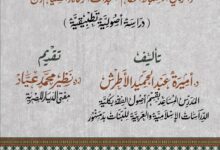 (دراسة أصولية تطبيقية)
تأليف
تقديم
د. أميرة عبد الحميد الأطرش
أ.د. نظير محمد عياد
المدرس المساعد بقسم أصول الفقه بكلية
مفتي الديار المصرية
الدراسات الإسلامية والعربية للبنات بدمنهور